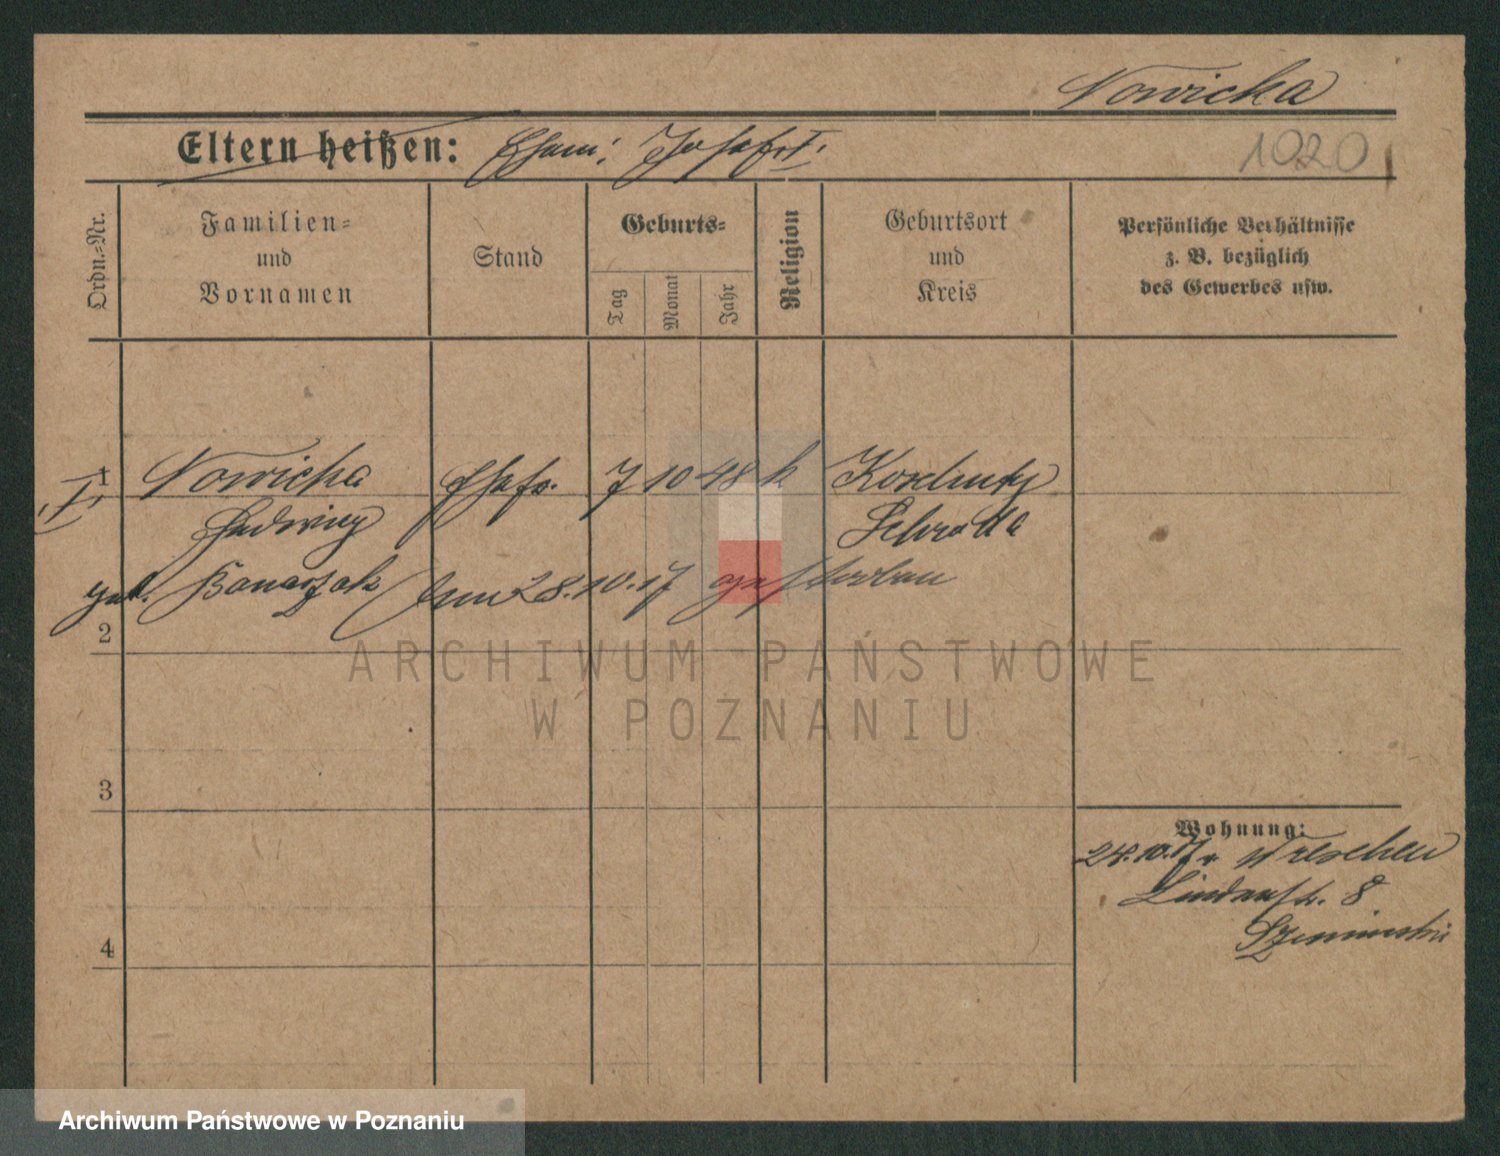 Nowicka
Eltern heißen: Ehem: Josafat.
1020
Ordn.-Nr.
Familien-
und
Vornamen
Stand
Geburts-
Tag
Monat
Jahr
Religion
Geburtsort
und
Kreis
Persönliche Verhältnisse
z. B. bezüglich
des Gewerbes usw.
I, 1 Nowicka Ehefr. 7 10 48 k
Hedwig Schroda
geb. Banaszak am 28.10.17 gestorben
2
3
4
Wohnung:
24.10.17 v. Wreschen
Lindenstr. 8
ARCHIWUM PAŃSTWOWE
W POZNANIU
Archiwum Państwowe w Poznaniu